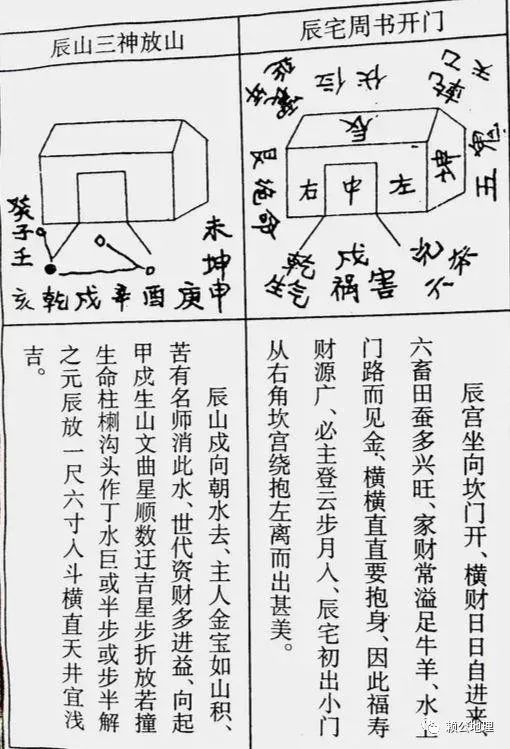 辰宅周书开门
伏位
乾
天乙
五鬼
艮
绝命
辰
右 中 左
乾
生气
戌
祸害
辰宫坐向坎门开、横财日日自进来
六畜田蚕多兴旺、家财常溢足牛羊、水上
门路而见金、横横直直要抱身、因此福寿
财源广、必主登云步月人、辰宅初出小门
从右角坎宫绕抱左离而出甚美。
辰山三神放山
癸
子
壬
未
坤
亥乾戌辛酉庚申
辰山戌向朝水去、主人金宝如山积、
苦有名师消此水、世代资财多进益、向起
甲戌生山文曲星顺数迂吉星步折放若撞
生命柱槨沟头作丁水巨或半步或步半解
之元辰放一尺六寸人斗横直天井宜浅
吉。
赖公地理